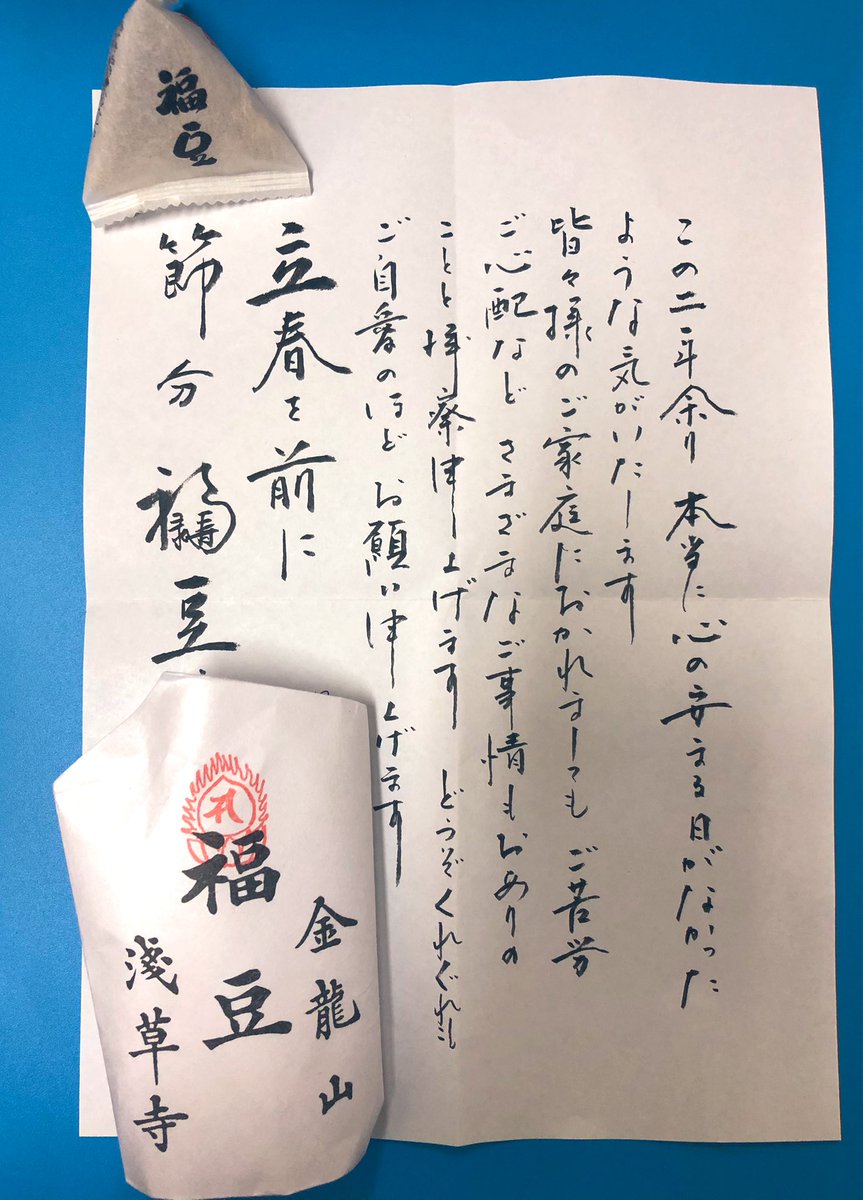 この二年余り 本当に心の安まる日がなかった
ような気がいたします
皆々様のご家庭におかれましても ご苦労
ご心配など さまざまなご事情もおありの
ことと拝察申し上げます どうぞくれぐれも
ご自愛のほどお願い申し上げます
立春を前に
節分 福豆
福豆
金龍山
福豆
淺草寺